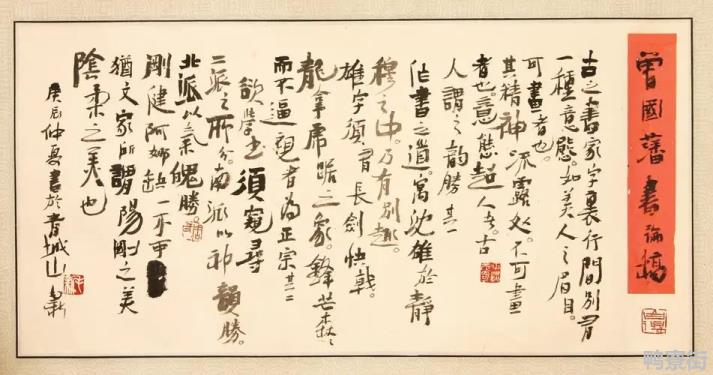 曾國藩書論摘
古之書家字裏行間別有
一種意態。如美人之眉目。
可畫者也。
其精神流露處。不可畫
者也。意態超人者。古
人謂之韵勝 其一
作書之道。寓沈雄於靜
穆之中。乃有別趣。
雄字須有長劍快戟。
龍拏虎踞之象。鋒芒森森
而不逼視者為正宗 其二
欲學書須窺尋
二派之所分。南派以神韻勝。
北派以氣魄勝
剛健阿娜缺一不可
猶文家所謂陽剛之美
陰柔之美也
庚辰仲夏書於青城山
鸭寮街